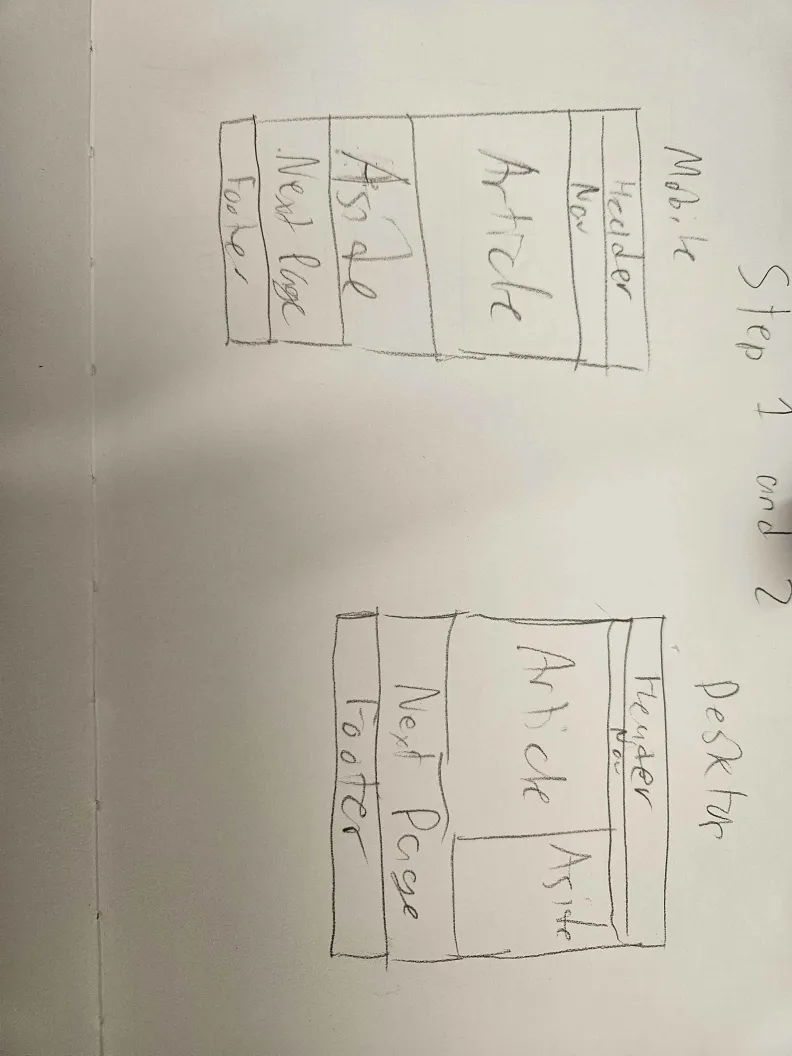 Step 1 and 2
Mobile
Header
Nav
Article
Aside
Next Page
Footer
Desktop
Header
Nav
Article
Aside
Next Page
Footer